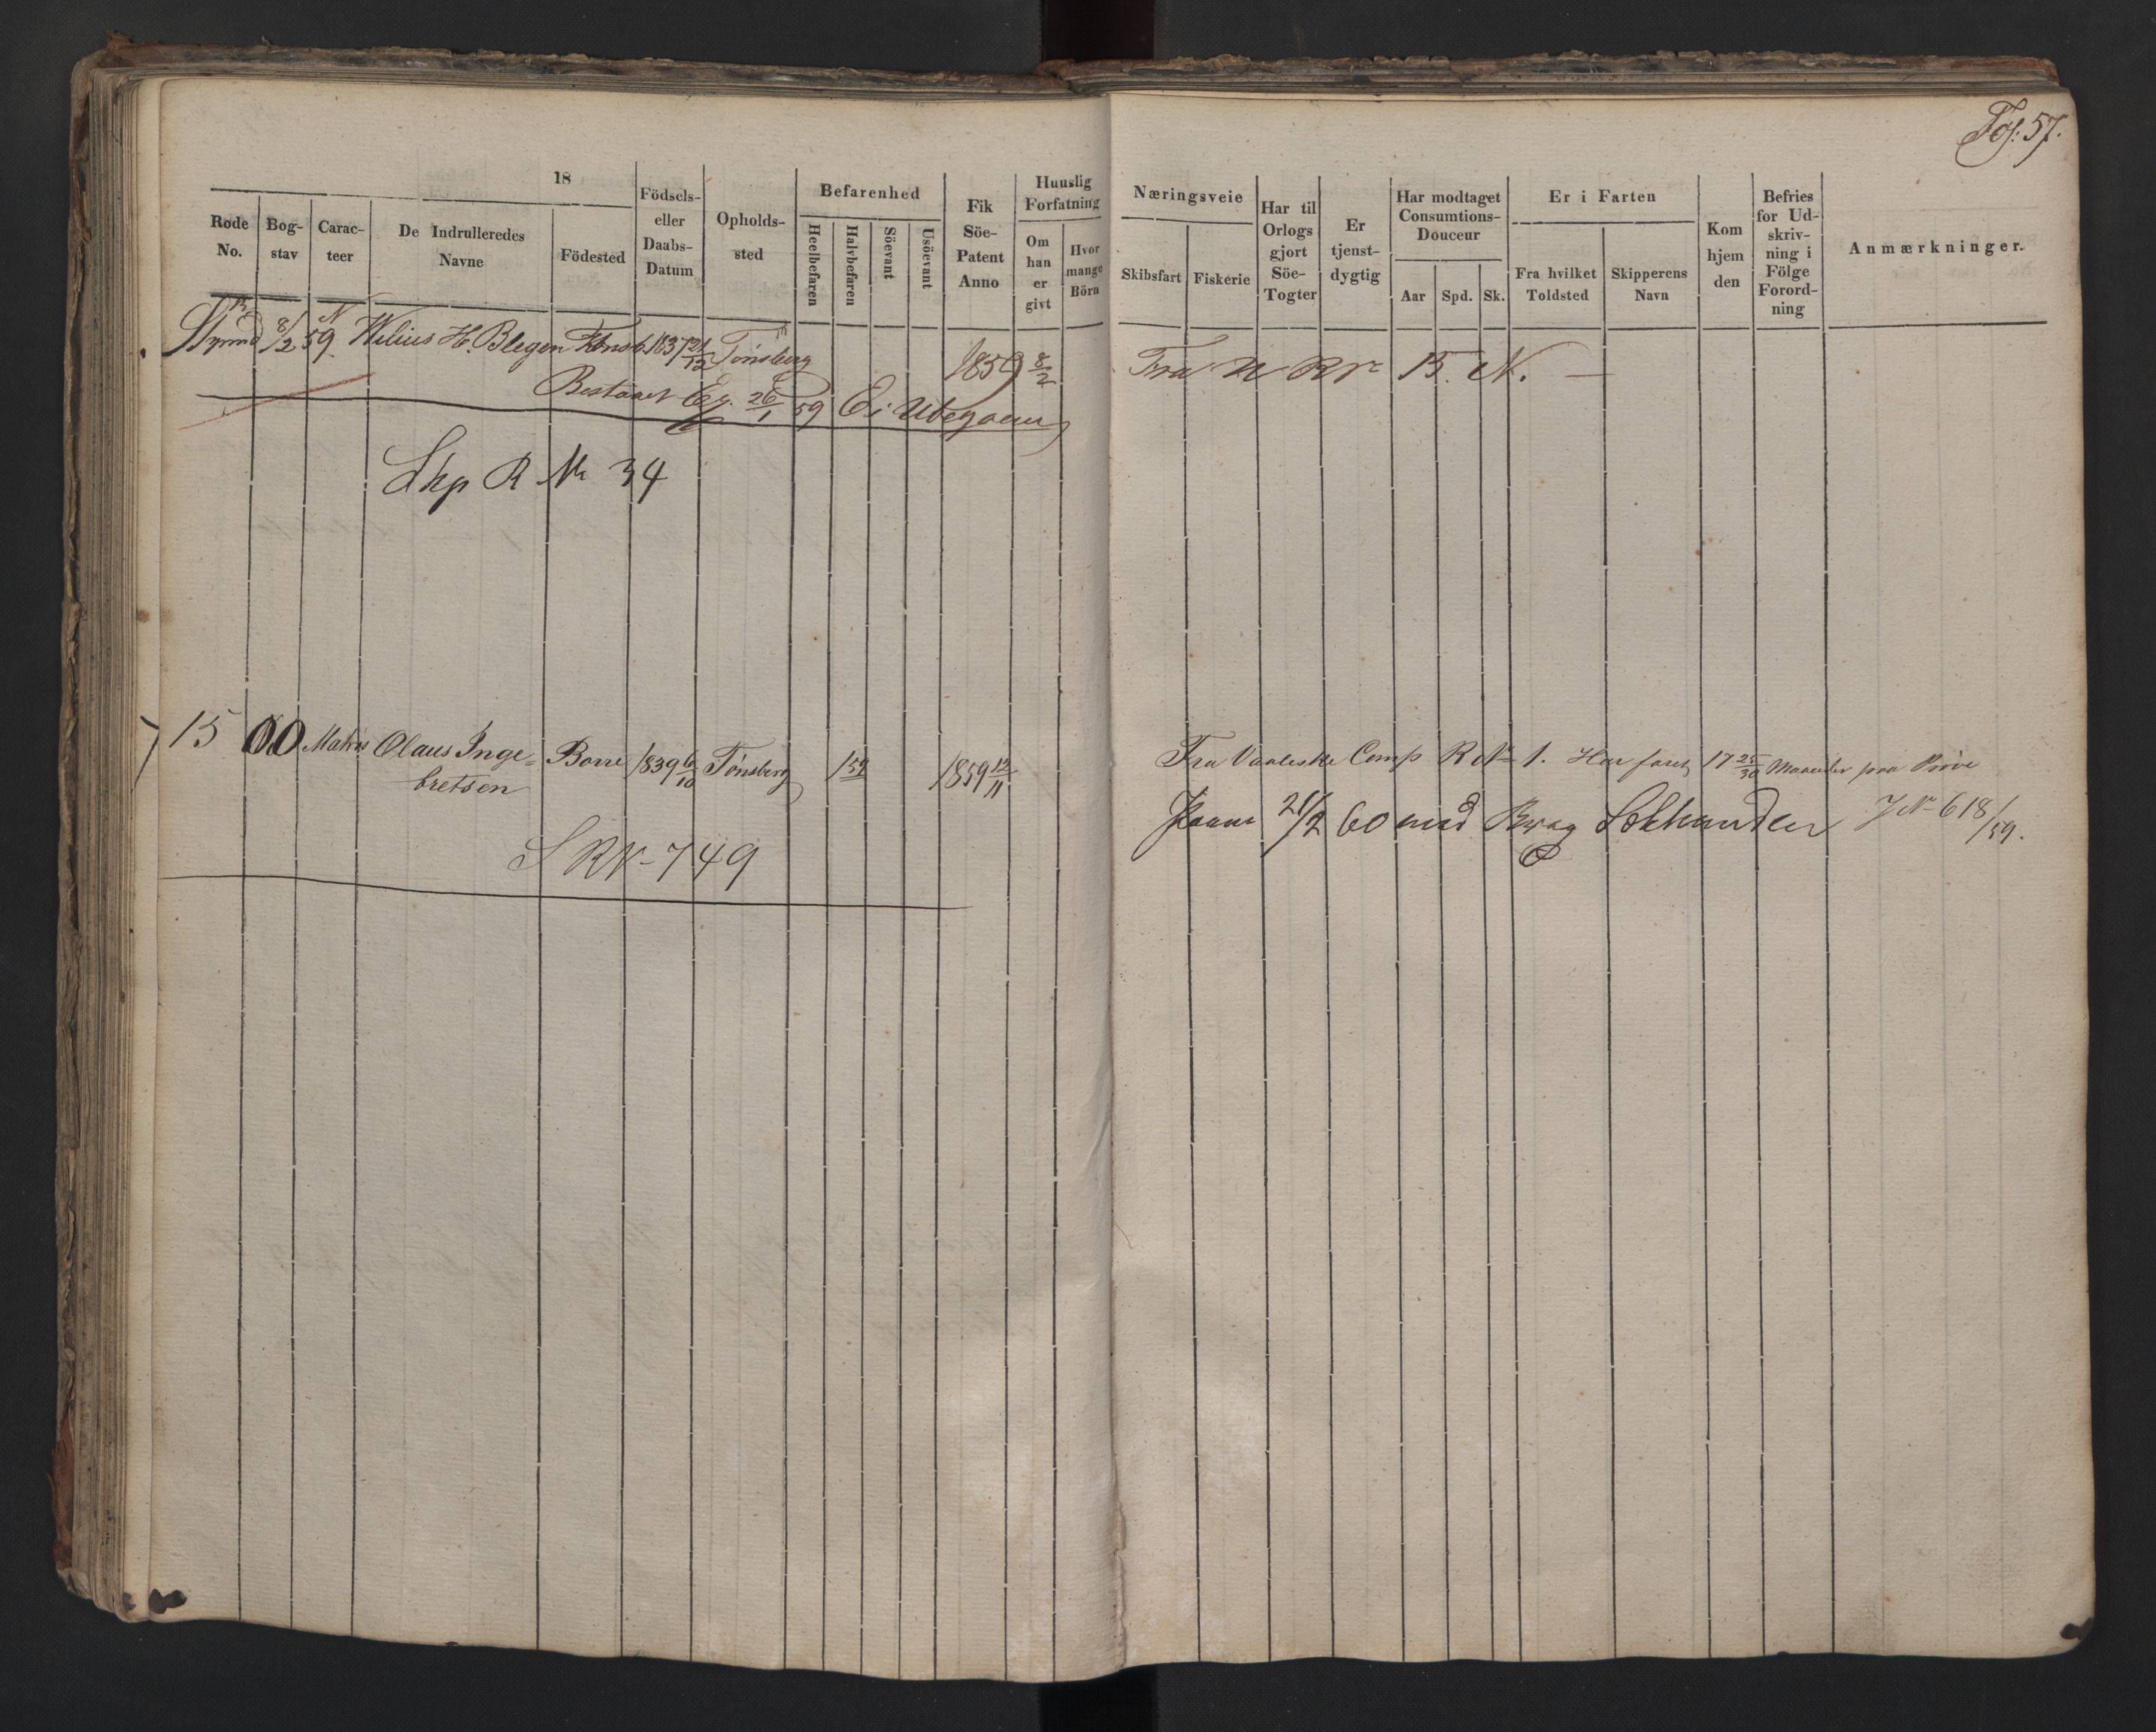 Fol: 57.
18
Rode No.
Bogstav
Caracteer
De Indrulleredes Navne
Födested
Födsels- eller Daabs-Datum
Opholdssted
Befarenhed
Heelbefaren
Halvbefaren
Söevant
Usöevant
Fik Söe-Patent Anno
Huuslig Forfatning
Om han er givt
Hvor mange Börn
Næringsveie
Skibsfart
Fiskerie
Har til Orlogs gjort Söe-Togter
Er tjenstdygtig
Har modtaget Consumtions-Douceur
Aar
Spd.
Sk.
Er i Farten
Fra hvilket Toldsted
Skipperens Navn
Kom hjem den
Befries for Udskrivning i Fölge Forordning
Anmærkninger.
Styrmd 8/2 59. Wilius H. Blegen Tønsb. 1837 21/12 Tønsberg 1859 8/2 Fra U R Nr 15. N. —
Bestaaet Ex. 26/1 59 Ei Udegaaen
Skp R Nr 34
15 OO Matros Olaus Inge= Borre 1839 6/10 Tønsberg 1 59 1859 12/11 Fra Vaaleske Comp R Nr 1. Har faret 17 25/30 Maaneder paa Prøve
bretsen
21/2 60 med J Nr 618/59.
S R Nr 749